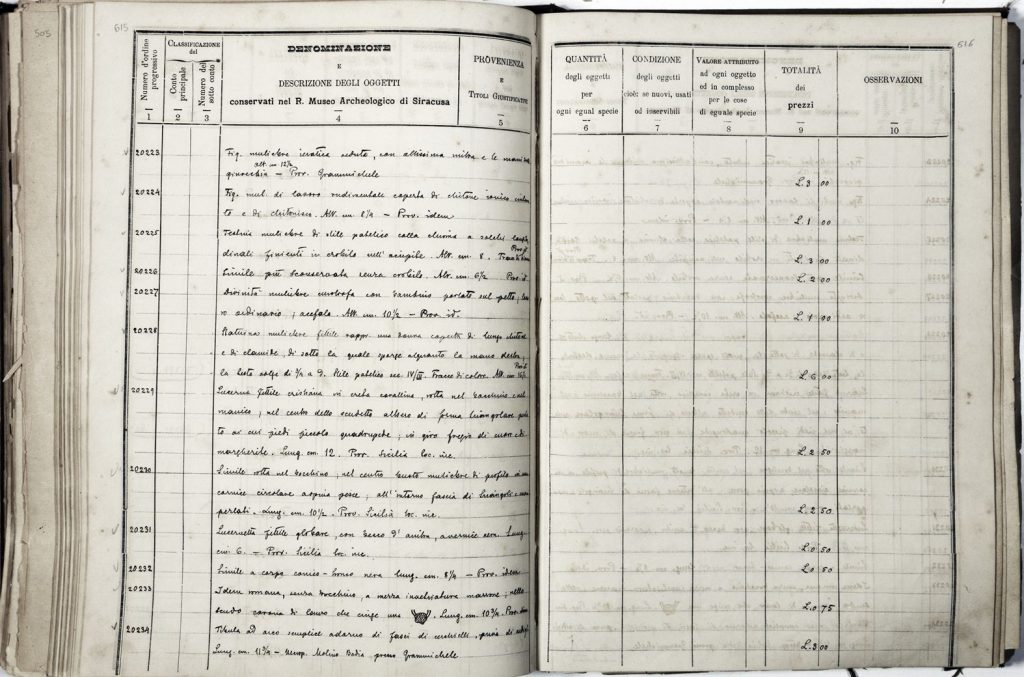 505
615
Numero d'ordine progressivo
CLASSIFICAZIONE
del
Conto principale
Numero del sotto conto
DENOMINAZIONE
E
DESCRIZIONE DEGLI OGGETTI
conservati nel R. Museo Archeologico di Siracusa
PROVENIENZA
E
TITOLI GIUSTIFICATIVI
1 2 3 4 5
20223 Fig. muliebre ieratica seduta, con altissima mitra e le mani sulle
alt. cm 12½
ginocchia – Prov. Grammichele
20224 Fig. mul. di lavoro rudimentale coperta di chitone ionico
to e di chitonisco. Alt. cm 8¼ – Prov. idem
20225 muliebre di stile
dinali finienti in crobilo sull' Alt. cm. 8.
20226 Simile più sconservata senza crobilo. Alt. cm. 6½ Prov. id.
20227 Divinità muliebre curotrofa con bambino portato sul petto;
ordinario; acefala. Alt. cm. 10½ – Prov. id.
20228 muliebre fittile rappr. una donna coperta di lungo
e di clamide, di sotto la quale sporge alquanto la mano destra,
la testa volge di ¾ a d. Stile sec IV/III. Tracce di colore. Alt. cm
20229 Lucerna fittile cristiana in creta corallina, rotta nel becchino e nel
manico; nel centro dello scudetto albero di forma triangolare
to ai cui piedi piccolo quadrupede; in giro fregio di cuori e di
margherite. Lung. cm. 12. Prov. Sicilia loc. inc.
20230 Simile rotta nel becchino, nel centro busto muliebre di profilo in una
cornice circolare a spina pesce; all'interno fascia di triangoli e
perlati. Lung. cm. 10½. Prov. Sicilia loc. inc.
20231 Lucernetta fittile globare, con becco d' a vernice nera. Lung.
cm 6. – Prov. Sicilia loc. inc.
20232 Simile a corpo conico-tronco nera Lung. cm. 8¼ – Prov. idem
20233 Idem romana, senza becchino, a mezza marrone; nello
scudo corona di lauro che cinge una Lung. cm. 10¾. Prov. idem
20234 Fibula ad arco semplice adorno di fasci di cerchielli, priva di
Lung. cm. 11¾ – Necrop. Molino Badia, presso Grammichele
616
QUANTITÀ
degli oggetti
per
ogni egual specie
CONDIZIONE
degli oggetti
cioè: se nuovi, usati
od inservibili
VALORE ATTRIBUITO
ad ogni oggetto
ed in complesso
per le cose
di eguale specie
TOTALITÀ
dei
prezzi
OSSERVAZIONI
6 7 8 9 10
L. 3 00
L. 1 00
L. 3 00
L. 2 00
L. 1 00
L. 5 00
L. 2 50
L. 2 50
L. 0 50
L. 0 50
L. 0 75
L. 3 00